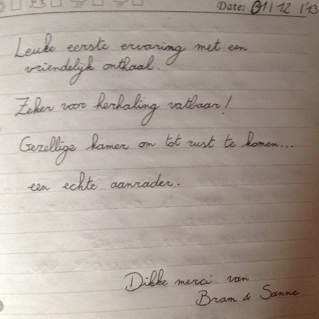 Date: 01 12 '13
Leuke eerste ervaring met een
vriendelijk onthaal.
Zeker voor herhaling vatbaar!
Gezellige kamer om tot rust te komen...
een echte aanrader.
Dikke merci van
Bram & Sanne